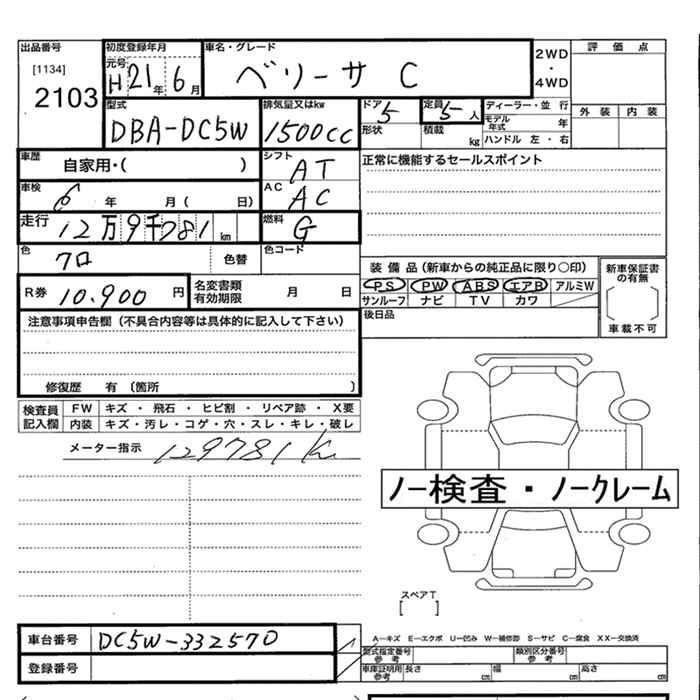 出品番号
[1134]
2103
初度登録年月
元号
H21年6月
車名・グレード
ベリーサ C
2WD
・
4WD
評価点
外装 内装
型式
DBA-DC5W
排気量又はkw
1500cc
ドア 5
形状
定員 5人
積載 kg
ディーラー・並 行
モデル年式 年
ハンドル 左・右
車歴
自家用・( )
シフト
AT
正常に機能するセールスポイント
車検
6 年 月( 日)
AC
AC
走行
12万9千781km
燃料
G
色
クロ
色替
色コード
装備品(新車からの純正品に限り○印)
PS PW ABS エアB アルミW
サンルーフ ナビ TV カワ
新車保証書の有無
[ ]
車載不可
R券 10,900 円
名変書類有効期限 月 日
後日品
注意事項申告欄(不具合内容等は具体的に記入して下さい)
修復歴 有 〔箇所 〕
検査員記入欄
FW キズ・飛石・ヒビ割・リペア跡・X要
内装 キズ・汚レ・コゲ・穴・スレ・キレ・破レ
メーター指示 129781K
ノー検査・ノークレーム
スペアT
[ ]
車台番号 DC5W-332570
登録番号
A−キズ E−エクボ U−凹み W−補修跡 S−サビ C−腐食 XX−交換済
型式指定番号 参考
類別区分番号 参考
車庫証明用 参考
長さ cm 幅 cm 高さ cm